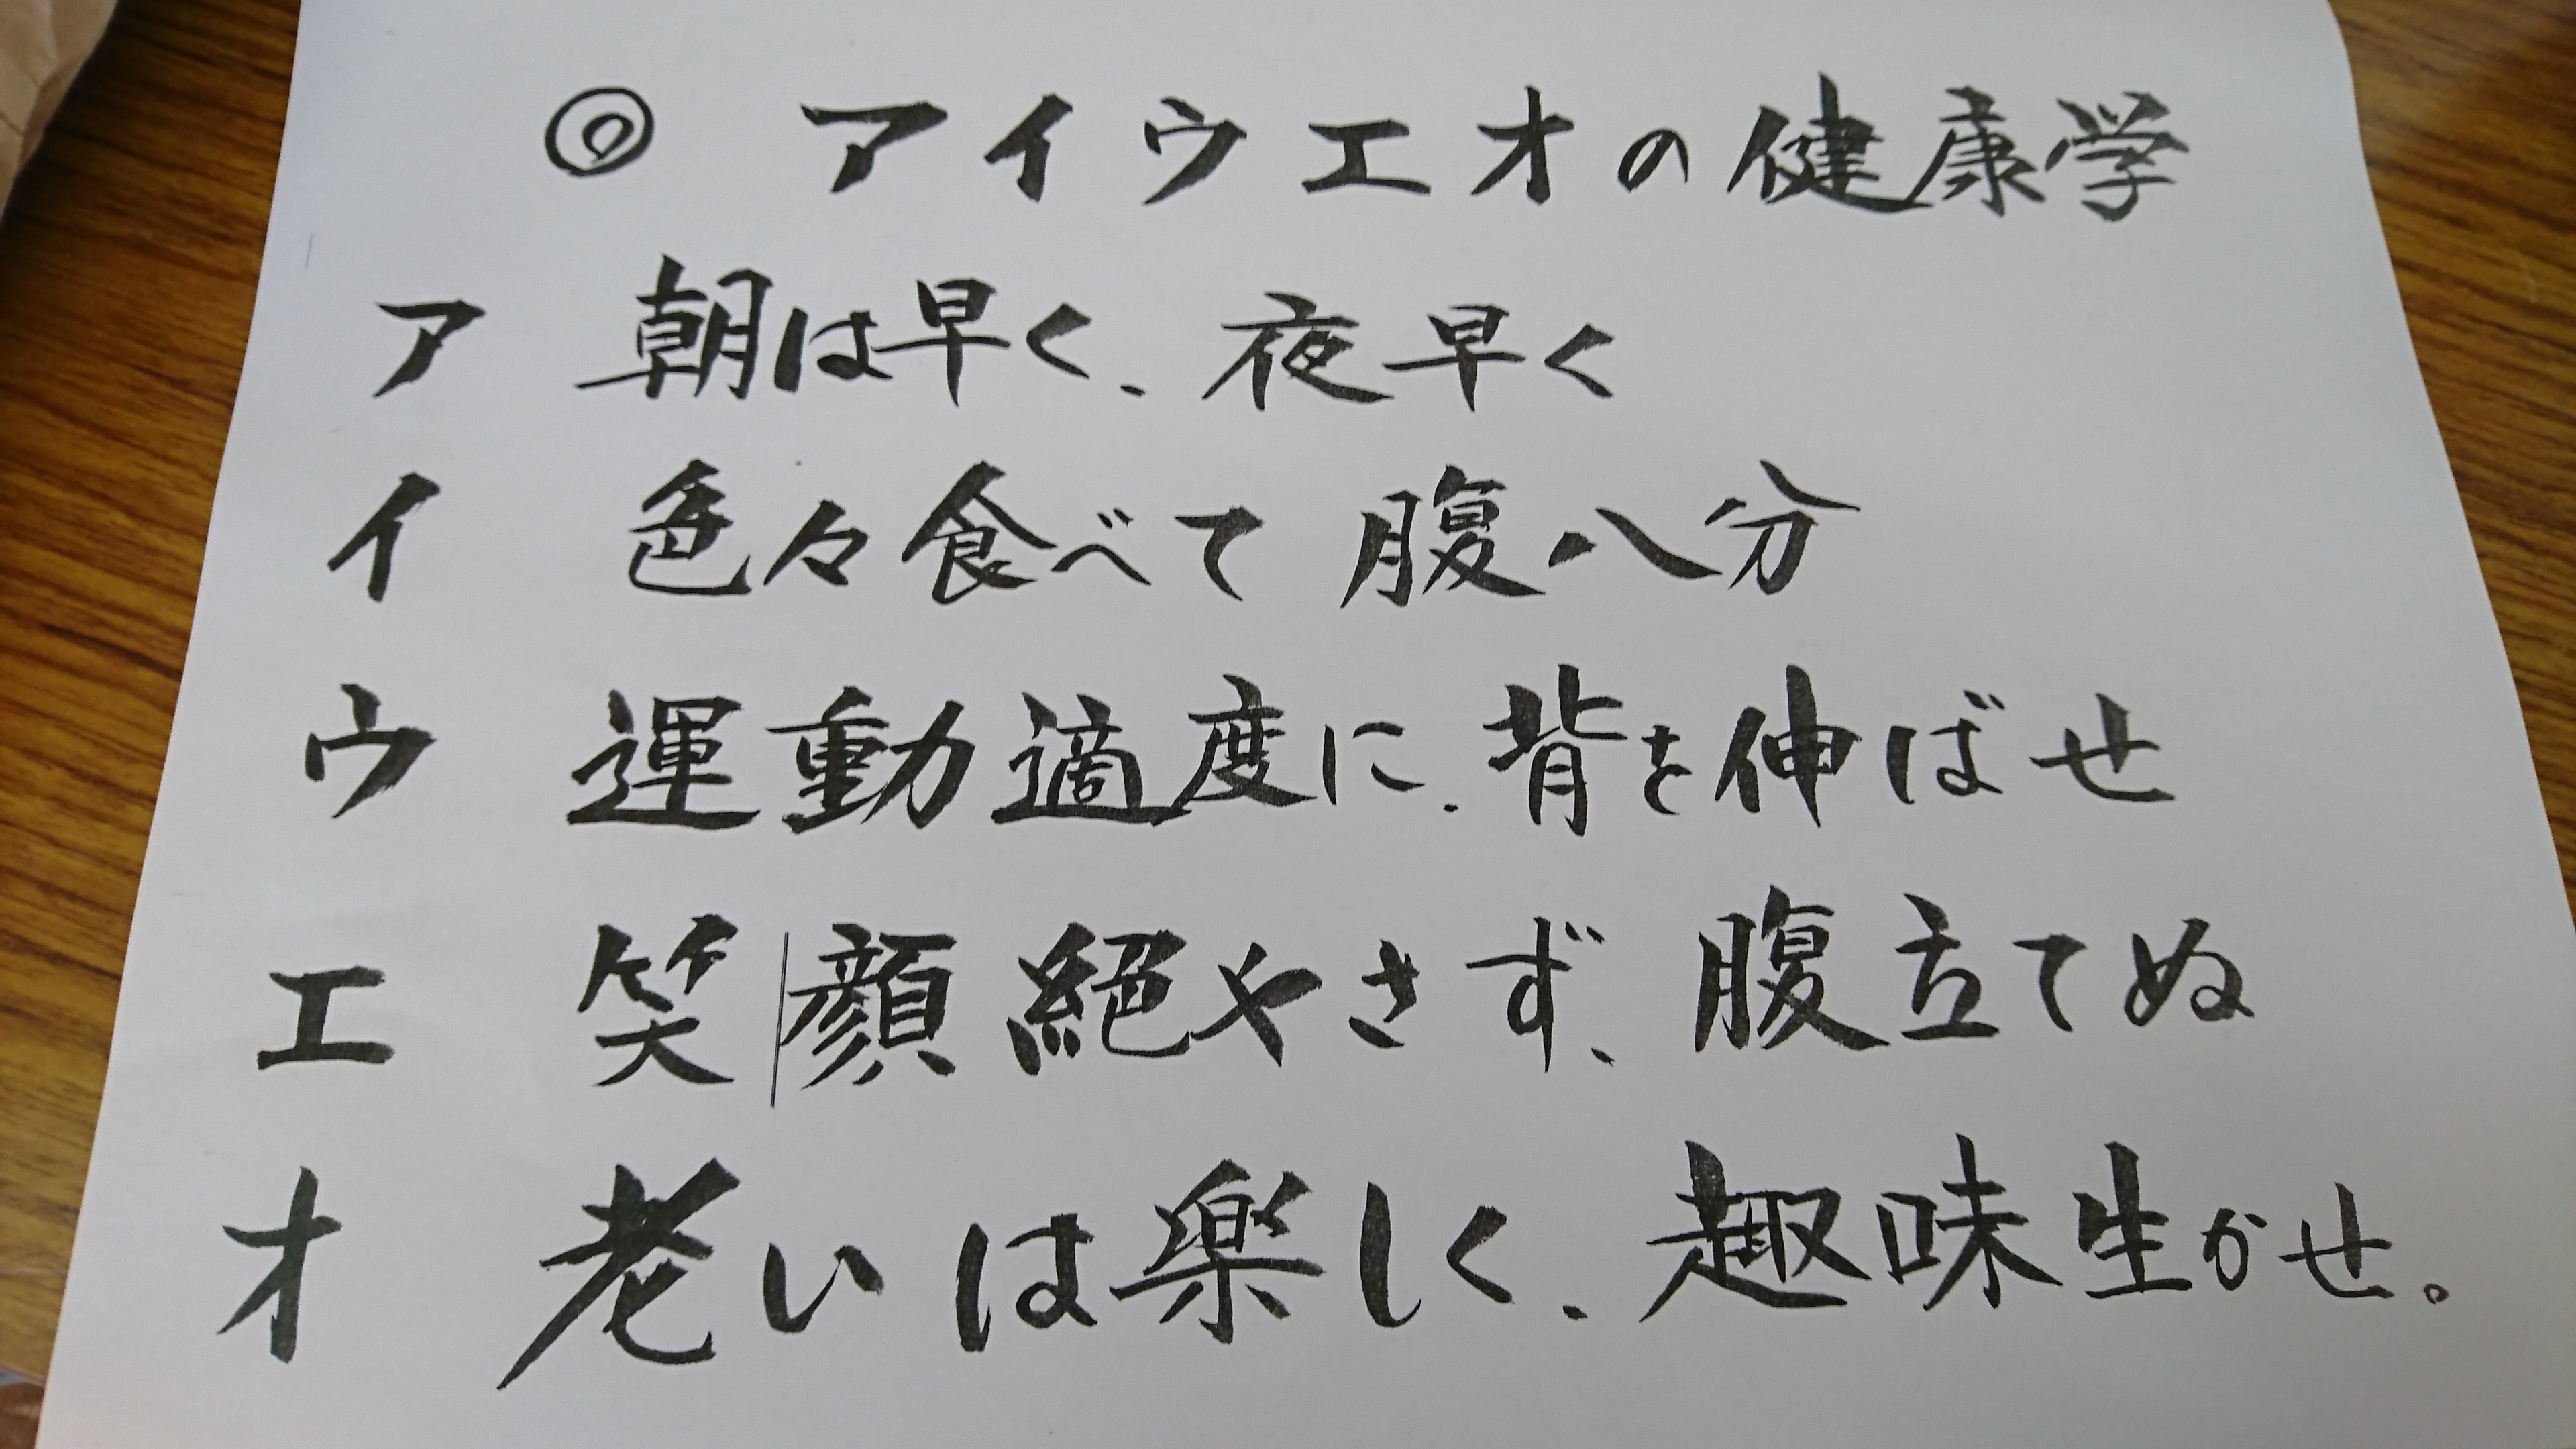 ◎ アイウエオの健康学
ア 朝は早く、夜早く
イ 色々食べて 腹八分
ウ 運動適度に、背を伸ばせ
エ 笑顔絶やさず、腹立てぬ
オ 老いは楽しく、趣味生かせ。